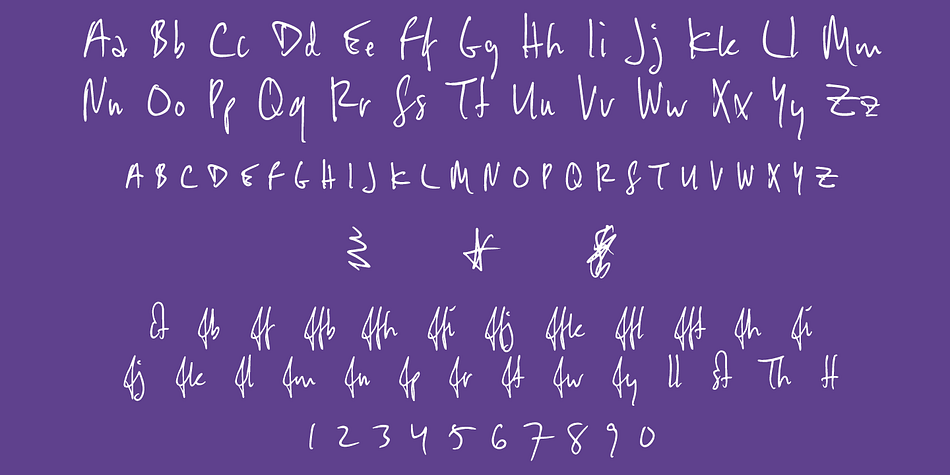 Aa Bb Cc Dd Ee Ff Gg Hh Ii Jj Kk Ll Mm
Nn Oo Pp Qq Rr Ss Tt Uu Vv Ww Xx Yy Zz
A B C D E F G H I J K L M N O P Q R S T U V W X Y Z
ct fb ff ffb ffh ffi ffj ffk ffl fft fh fi
fj fk fl fm fn fp fr ft fw fy ll st Th tt
1 2 3 4 5 6 7 8 9 0